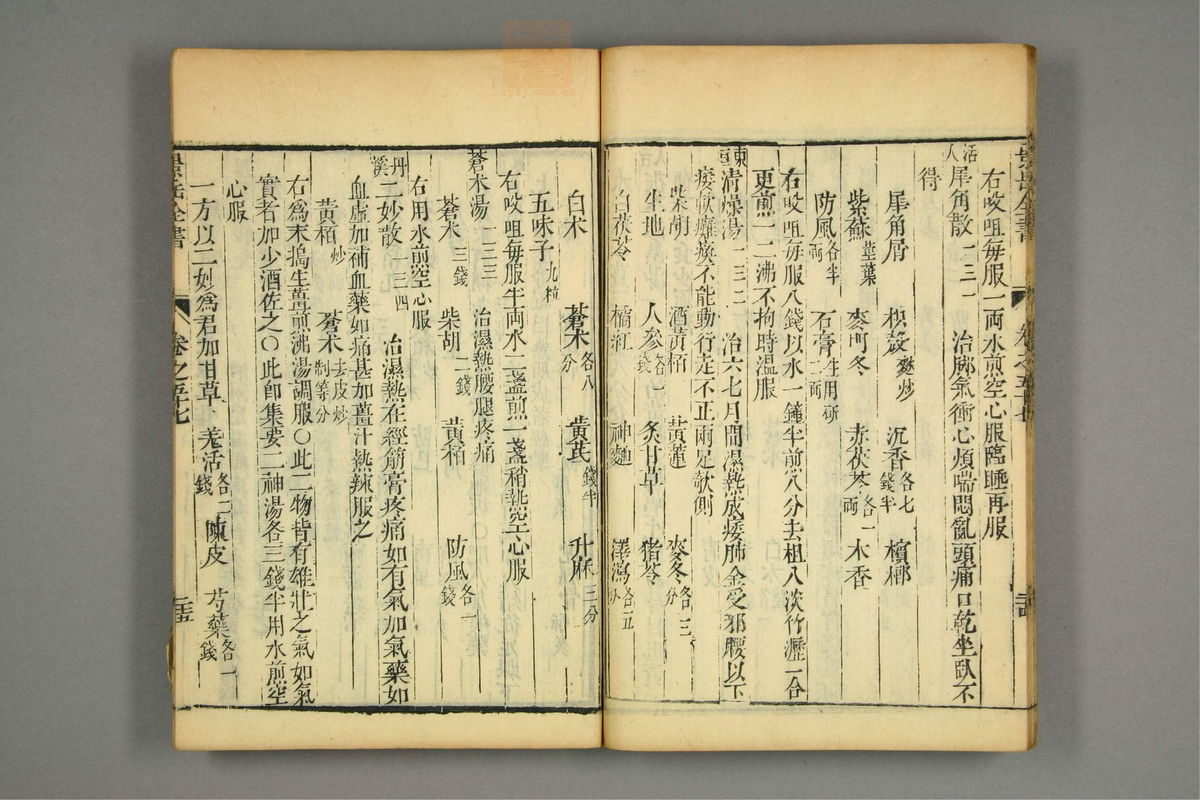 右㕮咀每服一両水煎空心服臨睡再服
活人犀角散一三一　治脚氣衝心煩喘悶亂頭痛口乾坐臥不
得
犀角屑　枳殼麩炒　沉香各七錢半　檳榔
紫蘇莖葉　麥門冬　赤茯苓各一両　木香
防風各半両　石膏生用研二両
右㕮咀每服八錢以水一鍾半煎八分去柤入淡竹瀝一合
更煎一二沸不拘時溫服
東垣清燥湯一三二　治六七月間濕熱成痿肺金受邪腰以下
痿軟癱瘓不能動行走不正兩足欹側
柴胡　酒黃栢　黃蓮　麥冬各三分
生地　人參各一錢　炙甘草　猪苓
白茯苓　橘紅　神麯　澤瀉各五分
白朮　蒼朮各八分　黃芪錢半　升麻三分
五味子九粒
右㕮咀每服半両水二盞煎一盞稍熱空心服
蒼朮湯一三三　治濕熱腰腿疼痛
蒼朮三錢　柴胡二錢　黃栢　防風各一錢
右用水煎空心服
丹溪二妙散一三四　治濕熱在經筋膏疼痛如有氣加氣藥如
血虛加補血藥如痛甚加薑汁熱辣服之
黃栢炒　蒼朮去皮炒制等分
右爲末搗生薑煎沸湯調服○此二物皆有雄壯之氣如氣
實者加少酒佐之○此卽集要二神湯各三錢半用水煎空
心服
一方以二妙爲君加甘草　羌活各二錢　陳皮　芍藥各一錢
景岳全書　卷之五十七　二十五